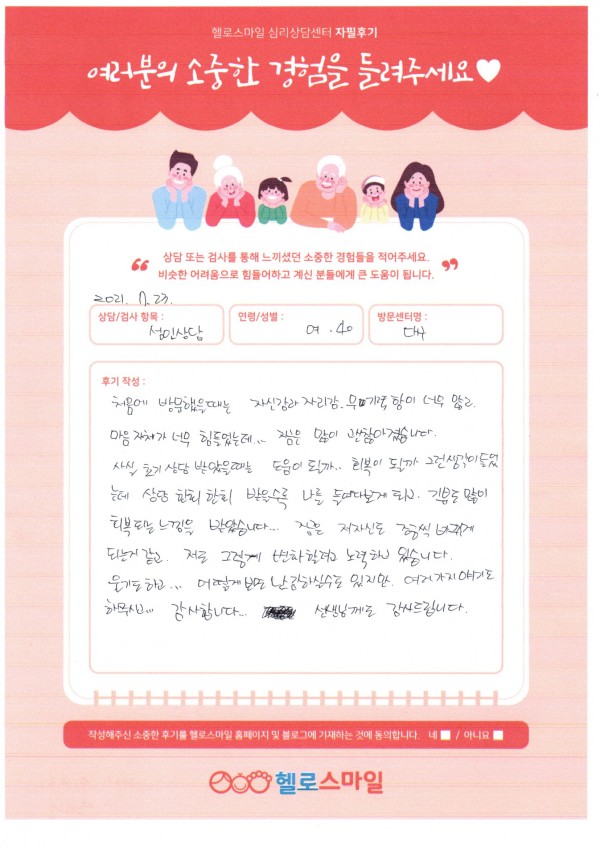 헬로스마일 심리상담센터 자필후기
여러분의 소중한 경험을 들려주세요
상담 또는 검사를 통해 느끼셨던 소중한 경험들을 적어주세요.
비슷한 어려움으로 힘들어하고 계신 분들에게 큰 도움이 됩니다.
2021. 7. 23.
상담/검사 항목 : 성인상담
연령/성별 : 여 . 40
방문센터명 :
후기 작성 :
처음에 방문했을때는 자신감과 무기력 함이 너무 많고.
마음 자체가 너무 힘들었는데... 지금은 많이 괜찮아졌습니다.
사실 초기 상담 받았을때는 도움이 될까.. 회복이 될까 그런생각이들었
는데 상담 한회 한회 받을수록 나를 들여다보게 되고. 기분도 많이
회복되는 느낌을 받았습니다... 지금은 저자신도 조금씩 바뀌게
되는거 같고. 저도 그렇게 변화할려고 노력하고 있습니다.
웃기도하고... 어떻게보면 난감하실수도 있지만. 여러가지 얘기도
해주시고... 감사합니다... 선생님께도 감사드립니다.
작성해주신 소중한 후기를 헬로스마일 홈페이지 및 블로그에 기재하는 것에 동의합니다. 네 / 아니요
헬로스마일